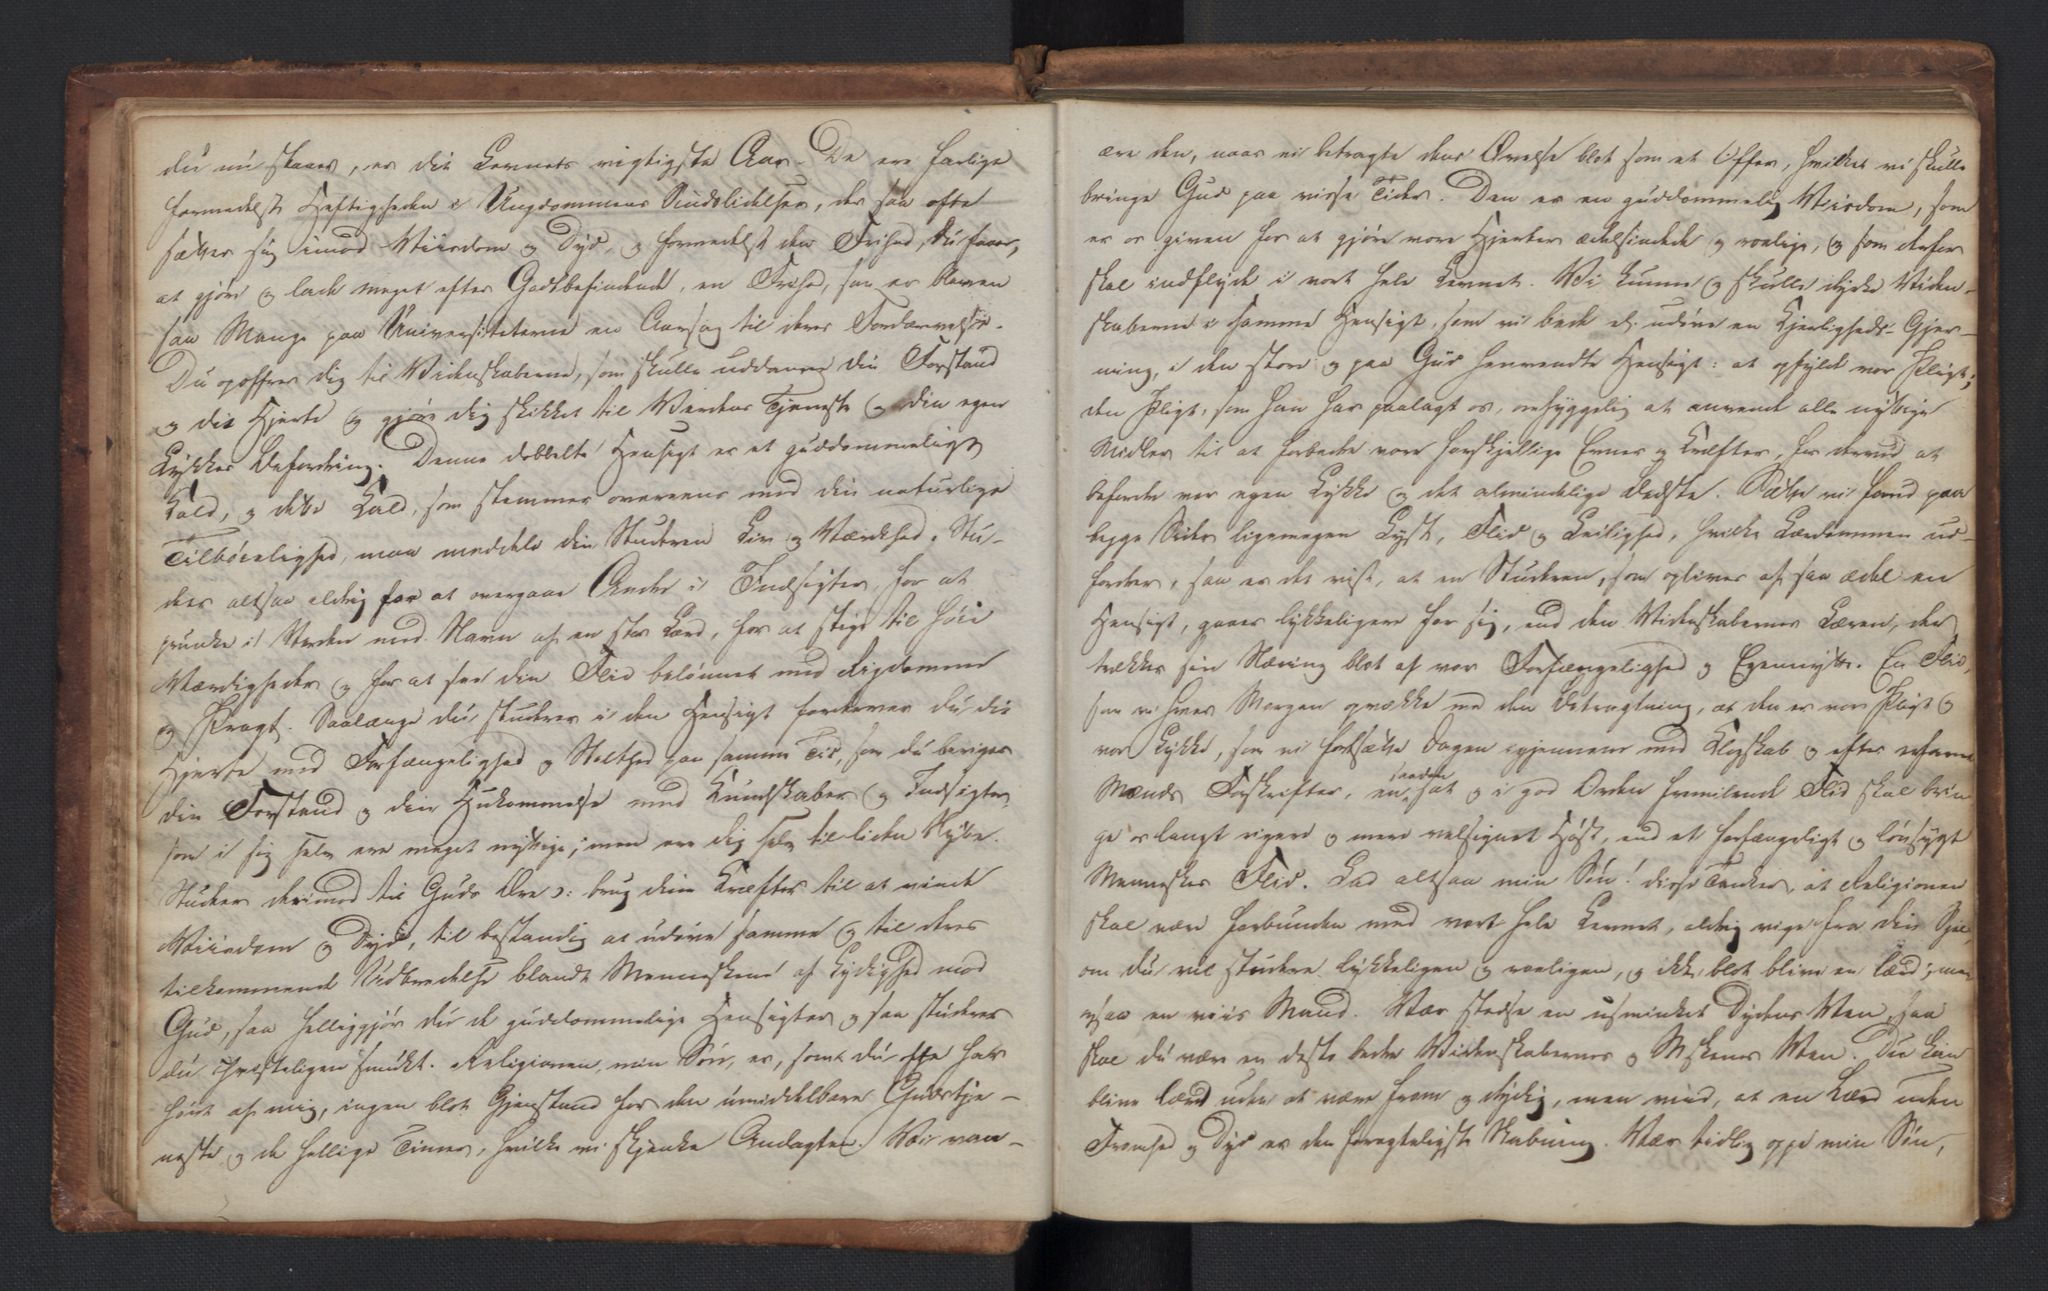 du nu staaer, er dit Levnets vigtigste Aar. De ere farlige
formedelst Heftigheden i Ungdommens Sindslidelser, der saa ofte
sætter sig imod Viisdom og Dyd, og formedelst den Frihed, du faaer,
at gjøre og lade meget efter Godtbefindende, en Frihed, som er bleven
saa Mange paa Universiteterne en Aarsag til deres Fordærvelse.
Du opoffrer dig til Videnskaberne, som skulle uddanne din Forstand
og dit Hjerte og gjøre dig skikket til Verdens Tjeneste og din egen
Lykkes Befordring. Denne dobbelte Hensigt er et guddommeligt
Kald, og dette Kald, som stemmer overeens med din naturlige
Tilbøielighed, maa meddele din Studeren Liv og Værdhed. Stu-
der altsaa aldrig for at overgaae Andre i Indsigter, for at
prunke i Verden med Navn af en stor Lærd, for at stige til høie
Værdigheder og for at see din Flid belønnet med Rigdomme
og Pragt. Saalænge du studerer i den Hensigt fordærver du dit
Hjerte med Forfængelighed og Stolthed paa samme Tid, som du beriger
din Forstand og din Hukommelse med Kundskaber og Indsigter,
som i sig selv ere meget nyttige; men ere dig selv til liden Nytte.
Studer derimod til Guds Ære ɔ: brug dine Kræfter til at vinde
Viisdom og Dyd, til bestandig at udøve samme og til deres
tilkommende Udbredelse blandt Menneskene af Lydighed mod
Gud, saa helliggjør du de guddommelige Hensigter og saa studerer
du christeligen smukt. Religionen, min Søn, er, som du ofte har
hørt af mig, ingen blot Gjenstand for den umiddelbare Gudstje-
neste og de hellige Timer, hvilke vi skjenke Andagten. Vi van-
ære den, naar vi betragte dens Øvelse blot som et Offer, hvilket vi skulle
bringe Gud paa visse Tider. Den er en guddommelig Viisdom, som
er os given for at gjøre vore Hjerter ædelsindede og rolige, og som derfor
skal indflyde i vort hele Levnet. Vi kunne og skulle dyrke Viden-
skaberne i samme Hensigt, som vi bede el. udøve en Kjerligheds-Gjer-
ning, i den store og paa Gud henvendte Hensigt: at opfylde vor Pligt;
den Pligt, som han har paalagt os, omhyggelig at anvende alle nyttige
Midler til at forbedre vore forskjellige Evner og Kræfter, for derved at
befordre vor egen Lykke og det almindelige Bedste. Sætte vi forud paa
begge Sider ligemegen Lyst, Flid og Leilighed, hvilke Lærdommen ud-
fordrer, saa er det vist, at en Studeren, som oplives af saa ædel en
Hensigt, gaaer lykkeligere for sig, end den Videnskabernes Læren, der
trækker sin Næring blot af vor Forfængelighed og Egennytte. En Flid,
som vi hver Morgen opvække med den Betragtning, at den er vor Pligt og
vor Lykke, som vi fortsætte Dagen igjennem med Klogskab og efter erfarne
Mænds Forskrifter, en saadan sat og i god Orden fremilende Flid skal brin
ge os langt rigere og mere velsignet Høst, end et forfængeligt og lønsygt
Menneskes Flid. Lad altsaa min Søn! disse Tanker, at Religionen
skal være forbunden med vort hele Levnet, aldrig vige fra din Sjæl,
om du vil studere lykkeligen og roeligen, og ikke blot blive en lærd; men
ogsaa en viis Mand. Vær stedse en usminket Dydens Ven, saa
skal du være en desto bedre Videnskabernes og Mskenes Ven. Du kan
blive lærd uden at være from og dydig, men viid, at en Lærd uden
Fromhed og Dyd er den foragteligste Skabning. Vær tidlig oppe min Søn,